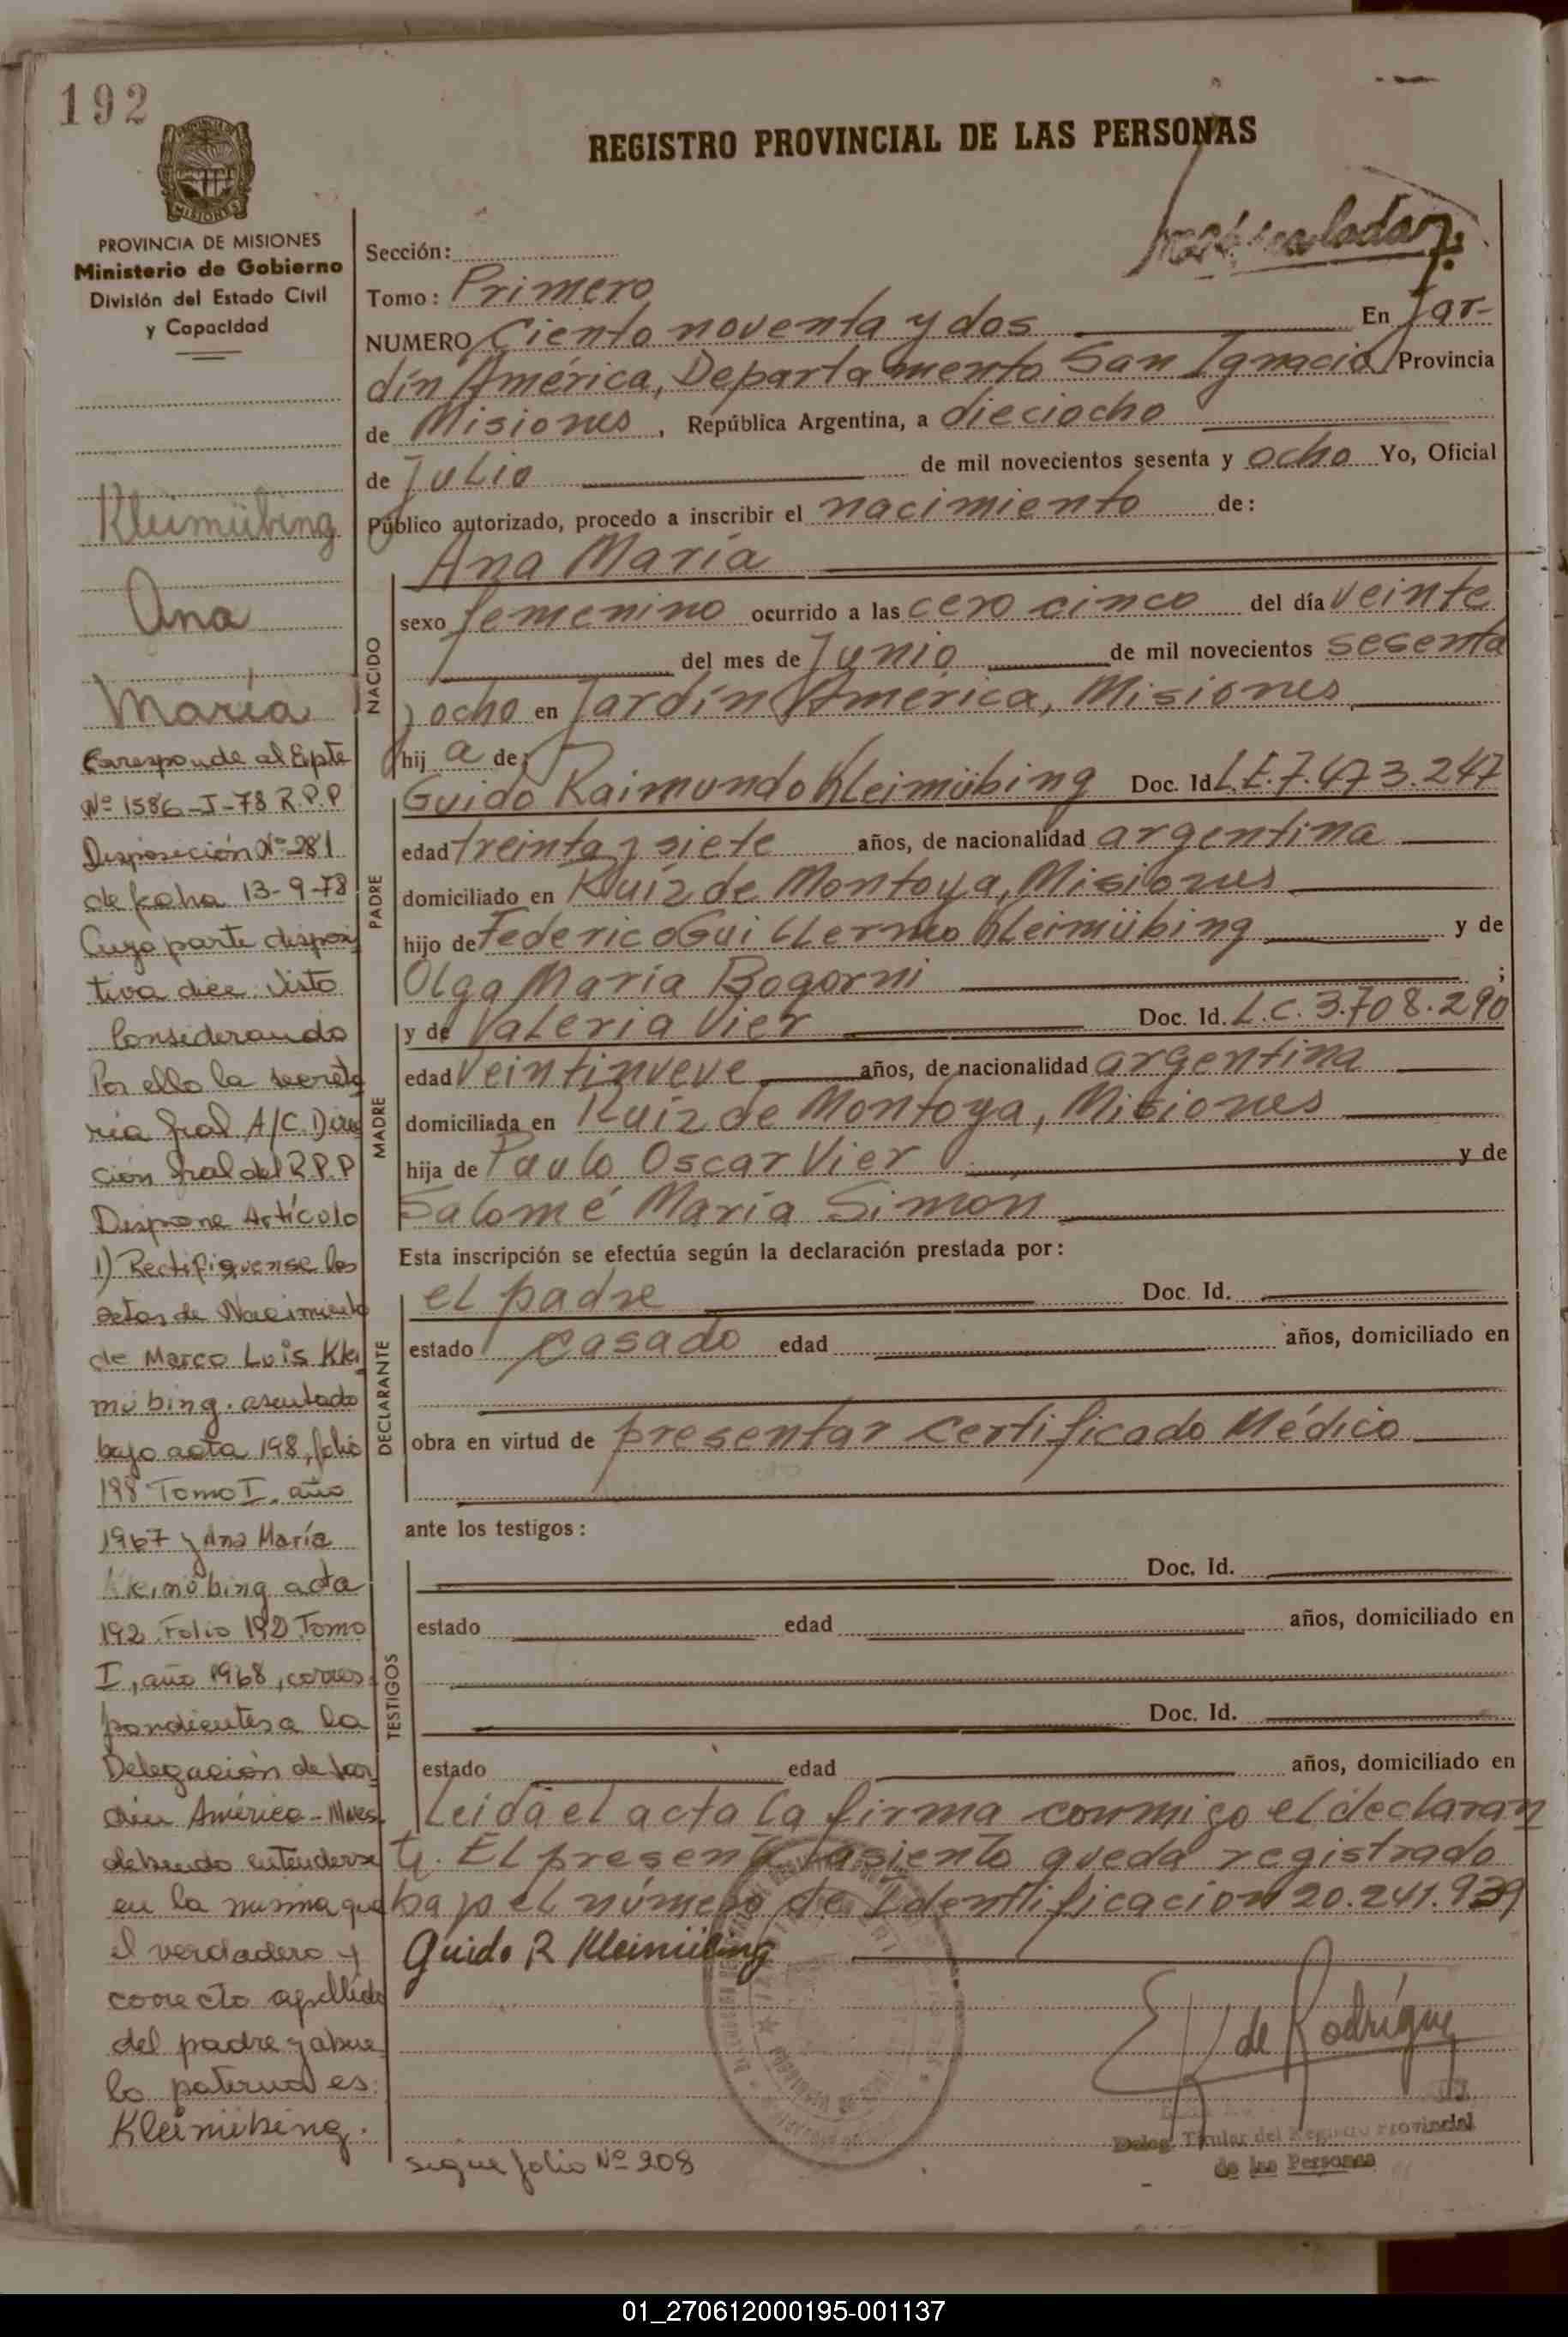 192
REGISTRO PROVINCIAL DE LAS PERSONAS
MISIONES
PROVINCIA DE MISIONES
Ministerio de Gobierno
División del Estado Civil
y Capacidad
Kleimübing
Ana
María
Corresponde al Expte
Nº 1586-J-78 R.P.P
Disposición Nº 281
de fecha 13-9-78
Cuya parte disposi
tiva dice: Visto
Considerando
Por ello la secreta
ria Gral A/C. Direc
ción Gral del R.P.P
Dispone Artículo
1) Rectifiquense las
actas de Nacimiento
de Marco Luis Klei
mübing. asentado
bajo acta 198, folio
198 Tomo I, año
1967 y Ana María
Kleimübing acta
192 Folio 192 Tomo
I, año 1968, corres
pondientes a la
Delegación de Jar
dín América - Mnes
debiendo entenderse
en la misma que
el verdadero y
correcto apellido
del padre y abue
lo paterno es:
Kleimübing.
Sección:
Tomo: Primero
NUMERO Ciento noventa y dos En Jar-
dín América, Departamento San Ignacio, Provincia
de Misiones, República Argentina, a dieciocho
de Julio de mil novecientos sesenta y ocho Yo, Oficial
Público autorizado, procedo a inscribir el nacimiento de:
Ana María
NACIDO
sexo femenino ocurrido a las cero cinco del día veinte
del mes de Junio de mil novecientos sesenta
y ocho en Jardín América, Misiones
hija de:
PADRE
Guido Raimundo Kleimübing Doc. Id L.E. 7.473.247
edad treinta y siete años, de nacionalidad argentina
domiciliado en Ruiz de Montoya, Misiones
hijo de Federico Guillermo Kleimübing y de
Olga María Bogorni ;
MADRE
y de Valeria Vier Doc. Id. L.C. 3.708.290
edad veintinueve años, de nacionalidad argentina
domiciliada en Ruiz de Montoya, Misiones
hija de Paulo Oscar Vier y de
Salomé María Simon
Esta inscripción se efectúa según la declaración prestada por:
DECLARANTE
el padre Doc. Id.
estado casado edad años, domiciliado en
obra en virtud de presentar certificado Médico
ante los testigos:
TESTIGOS
Doc. Id.
estado edad años, domiciliado en
Doc. Id.
estado edad años, domiciliado en
Leida el acta la firma conmigo el declaran
te. El presente asiento queda registrado
bajo el número de Identificacion 20.241.939
Guido R Kleimübing
E K de Rodríguez
Deleg. Titular del Registro Provincial
de las Personas
sigue folio Nº 208
01_270612000195-001137